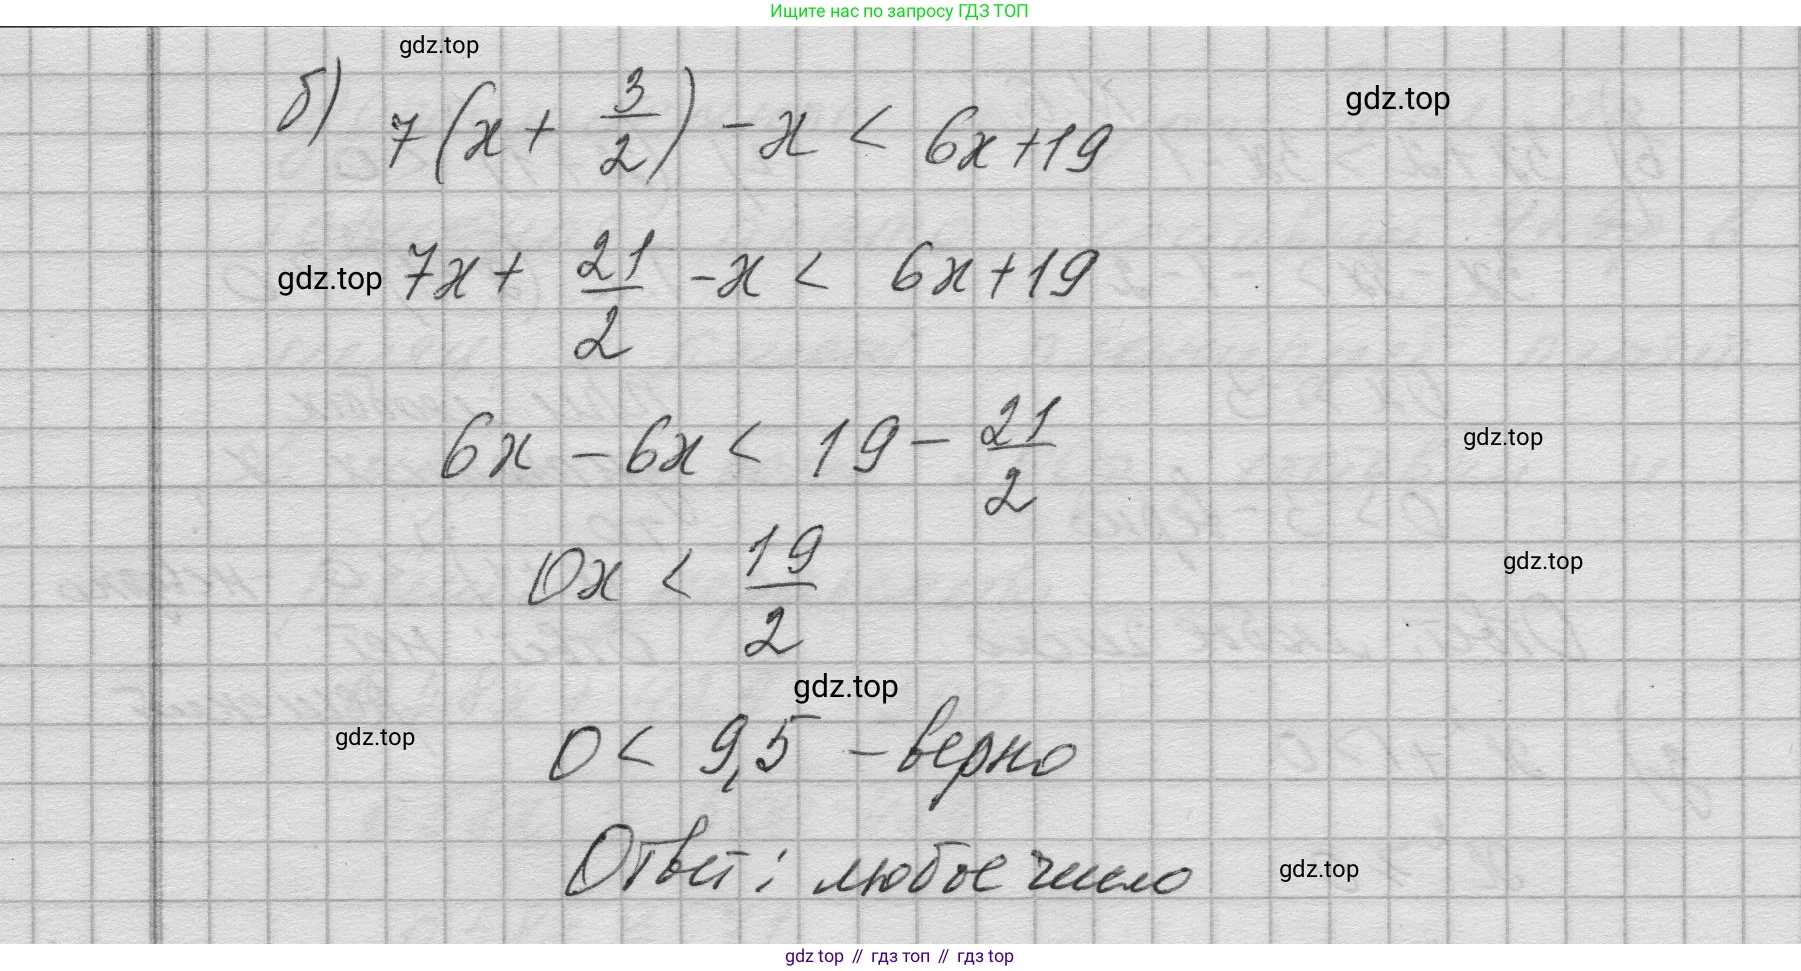 Ищите нас по запросу ГДЗ ТОП
gdz.top
б) 7(x + 3/2) - x < 6x + 19
gdz.top
gdz.top
7x + 21/2 - x < 6x + 19
6x - 6x < 19 - 21/2
gdz.top
0x < 19/2
gdz.top
gdz.top
gdz.top
0 < 9,5 - верно
Ответ: любое число
gdz.top
gdz top // гдз топ // гдз top